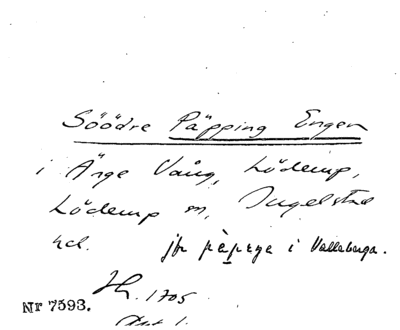 Söödre Päpping Engen
i Änge Vång, Löderup,
Löderup sn, Ingelstad
hd. jfr päpeya i Vallaberga.
LM. 1705
Nr 7593.
Akt 1.